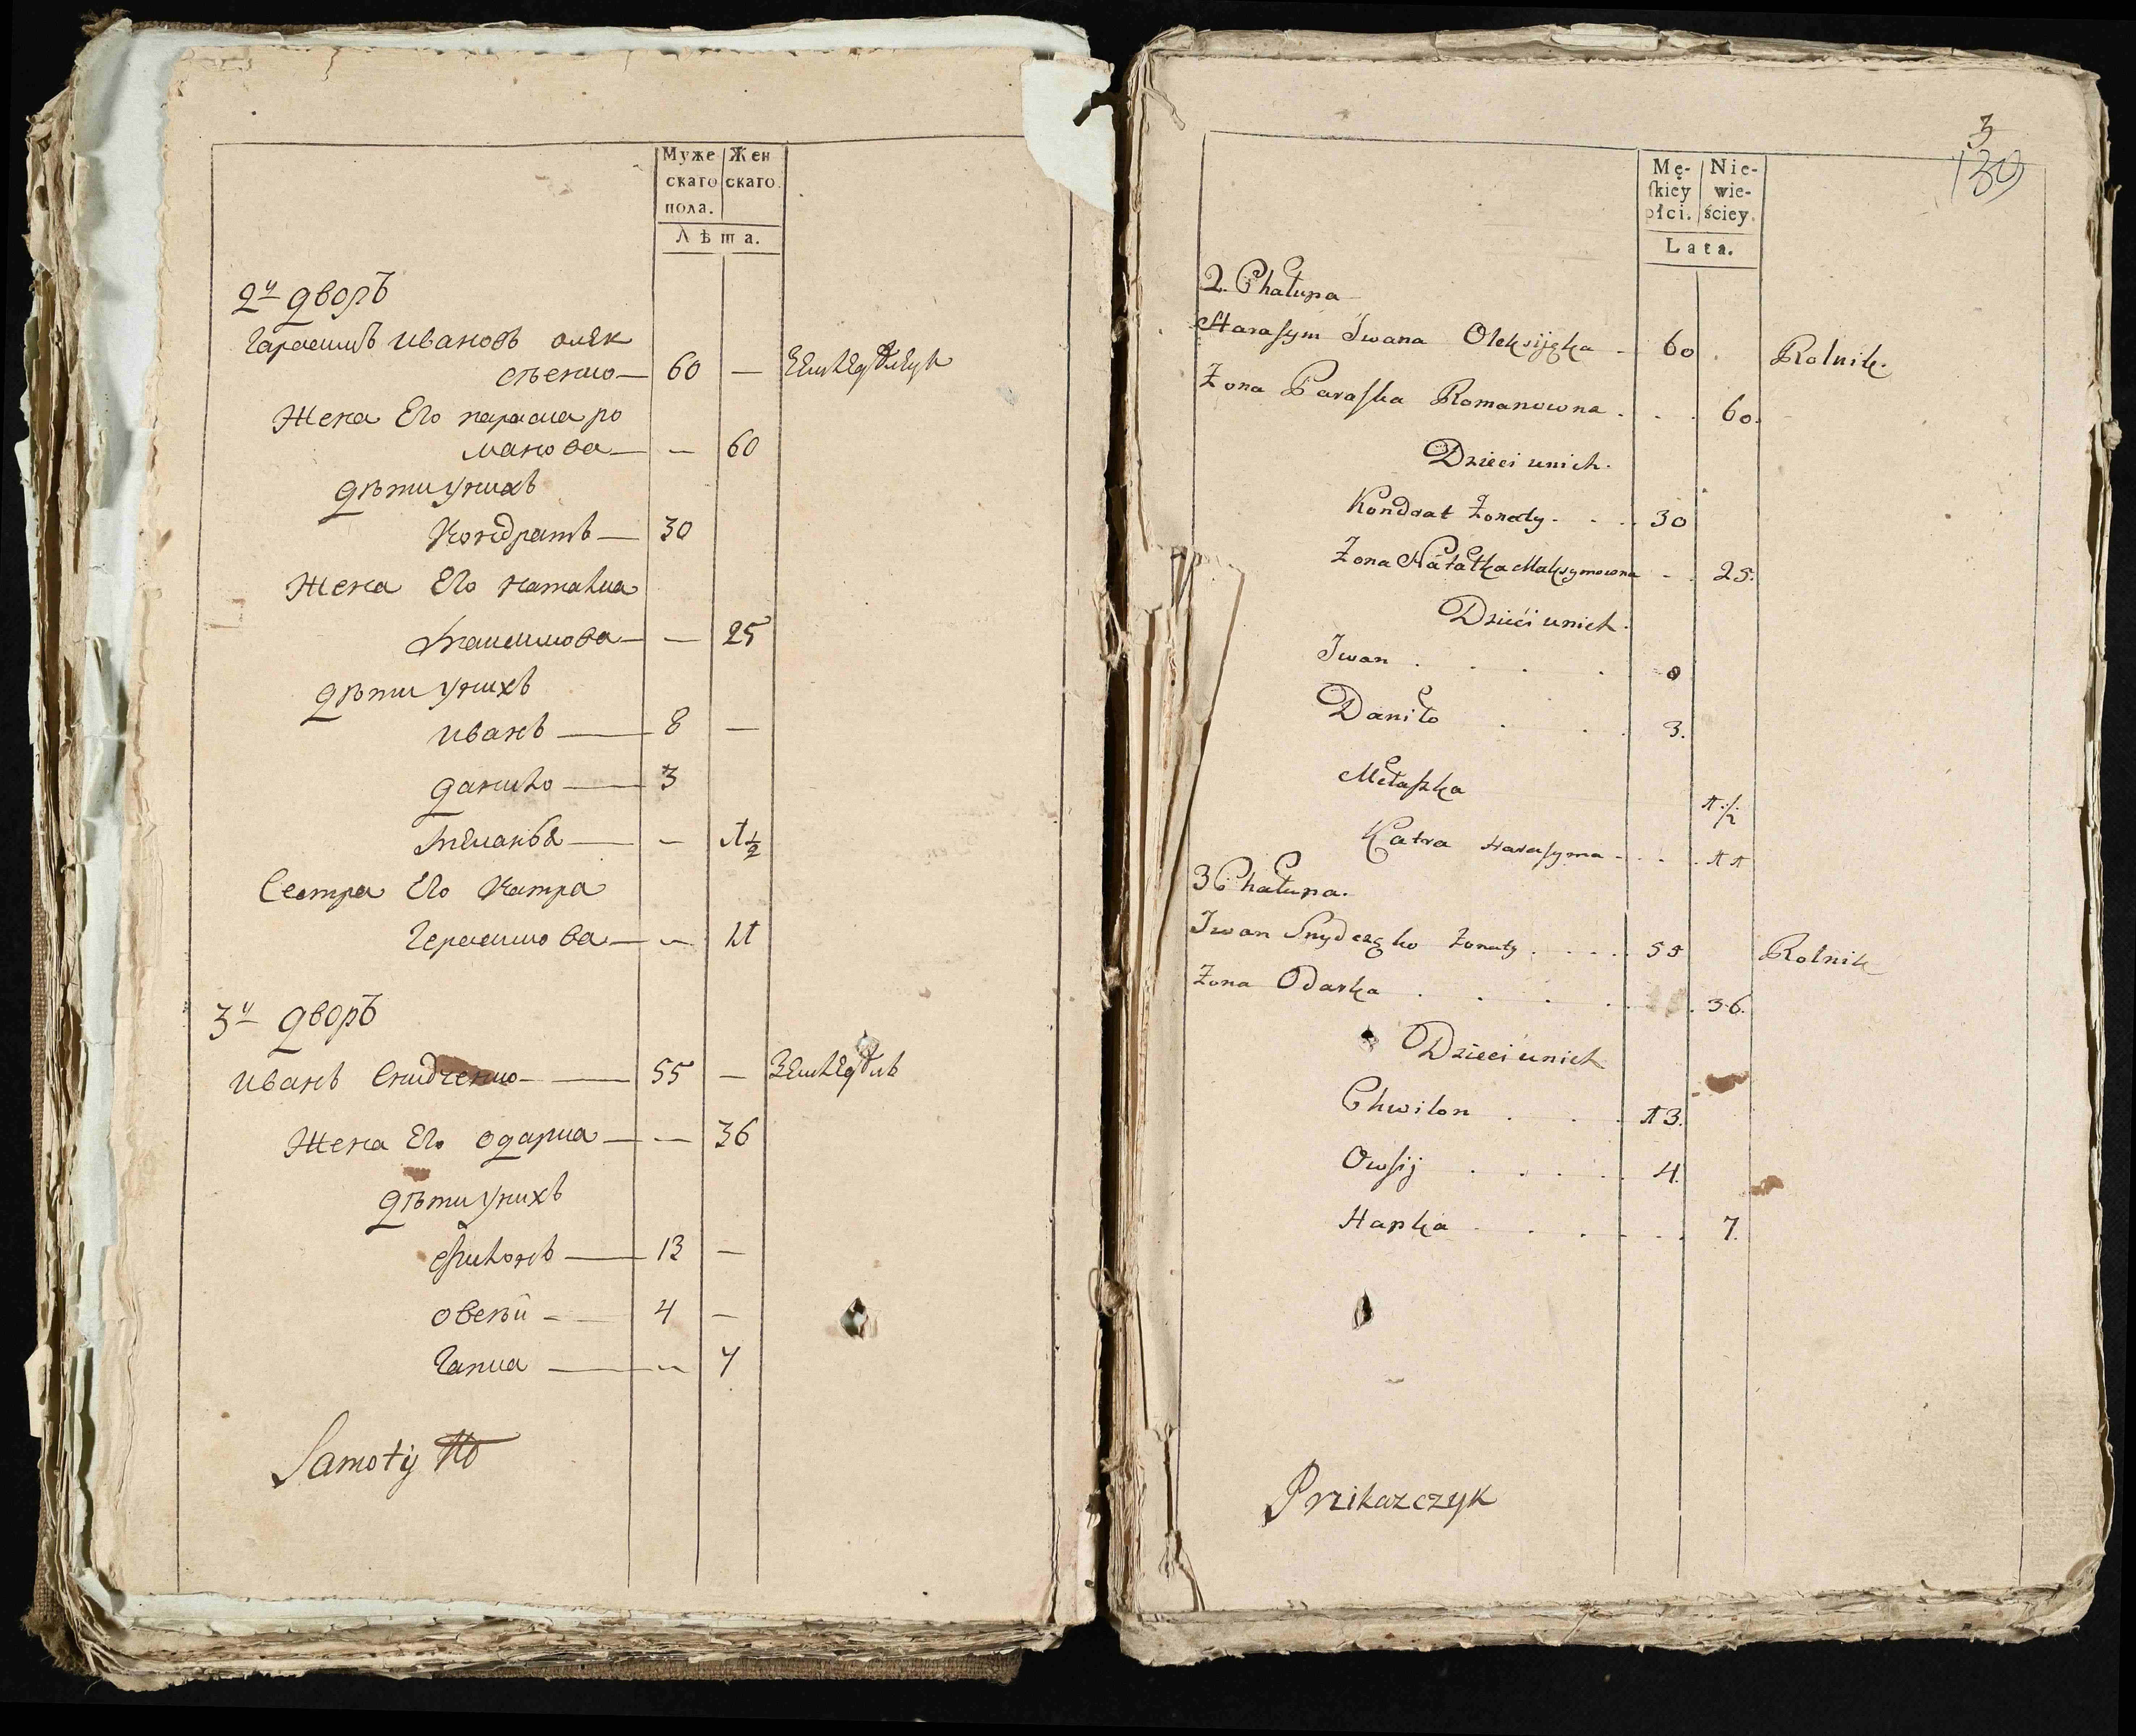 Муже Жен
скаго скаго.
пола.
Лѣта.
2й дворъ
Гарасимъ ивановъ олек
сѣенко — 60 —
Жена Его параска ро
манова — — 60
дѣти унихъ
Кондратъ — 30
Жена Его наталка
— — 25
дѣти унихъ
иванъ — 8 —
данило — 3
— — 1½
Сестра Его Катра
Герасимова — — 11
3й дворъ
иванъ Снидченко — 55 —
Жена Его одарка — — 36
дѣти унихъ
филонъ — 13 —
овсѣй — 4 —
Гапка — — 7
Samotij
3
139
Mę- Nie-
ſkiey wie-
płci. ściey.
Lata.
2. Chałupa
Harasym Iwana Oleksijęka - 60 . Rolnik.
Żona Paraska Romanowna . . . 60.
Dzieci unich.
Kondrat Żonaty . . . 30
Żona Nátałka Maksymowna - . 25.
Dzieci unich.
Iwan . . . . 8
Daniło . . . 3.
Melaszka 1½
Katra Harasyma . . . . 11
3 Chałupa.
Iwan Snydczęko Żonaty . . . . . 55 Rolnik
Żona Odarka . . . . . 36.
Dzieci unich
Chwilon . . . 13.
Owsij . . . . 4.
Hapka . . . . . 7.
Przikazczyk